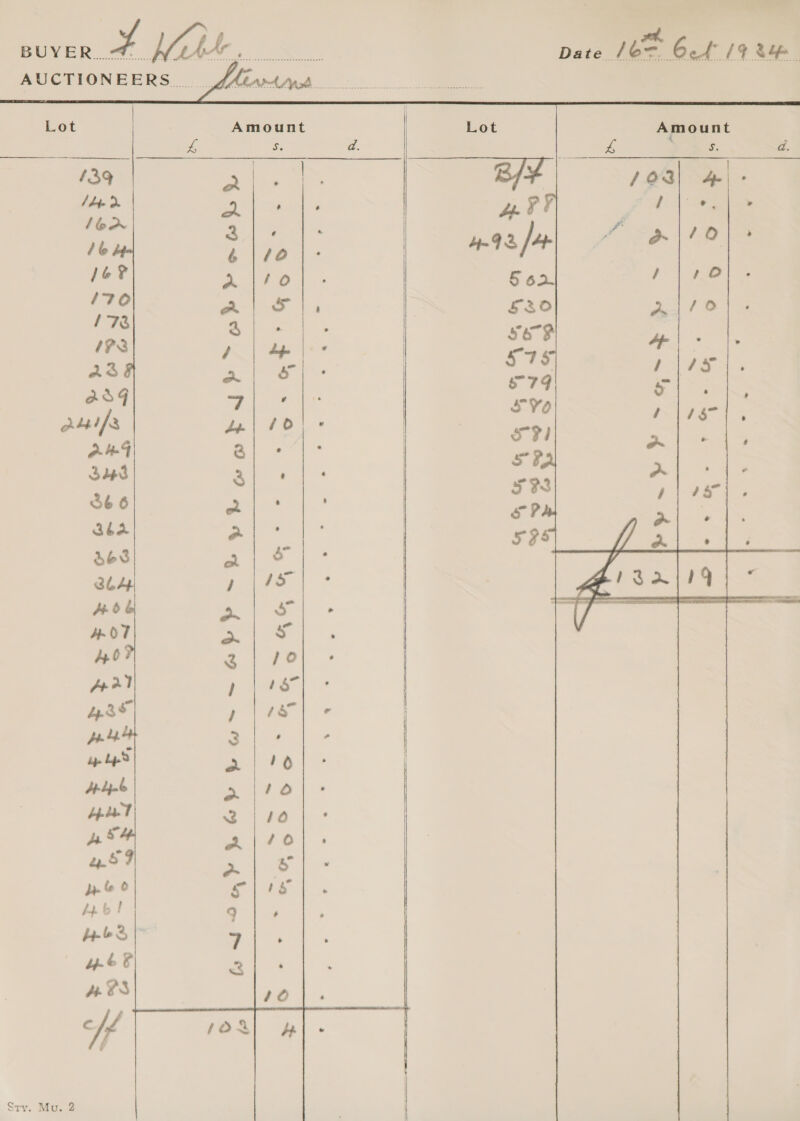 BUYER F Webb Date 16th Oct 1924
AUCTIONEERS Stevens
Lot Amount
£ s. d.
139 2 . .
142 2 . .
162 3 . .
164 6 10 .
168 2 10 .
170 2 5 .
173 3 . .
183 1 4 .
238 2 5 .
239 7 . .
241/3 4 10 .
249 3 . .
343 3 . .
356 2 . .
362 2 . .
363 2 5 .
364 1 15 .
406 2 5 .
407 2 5 .
408 3 10 .
427 1 15 .
435 1 15 .
444 3 . .
445 2 10 .
446 2 10 .
447 3 10 .
454 2 10 .
459 2 5 .
460 5 15 .
461 9 . .
463 7 . .
468 3 . .
483 10 .
c/f 103 4 .
Lot Amount
£ s. d.
B/F 103 4 .
488 1 . .
493/4 2 10 .
502 1 10 .
530 2 10 .
568 4 . .
575 1 15 .
579 5 . .
580 1 15 .
581 2 . .
582 2 . .
583 1 15 .
584 2 . .
585 2 . .
£132 19 -
Sty. Mu. 2